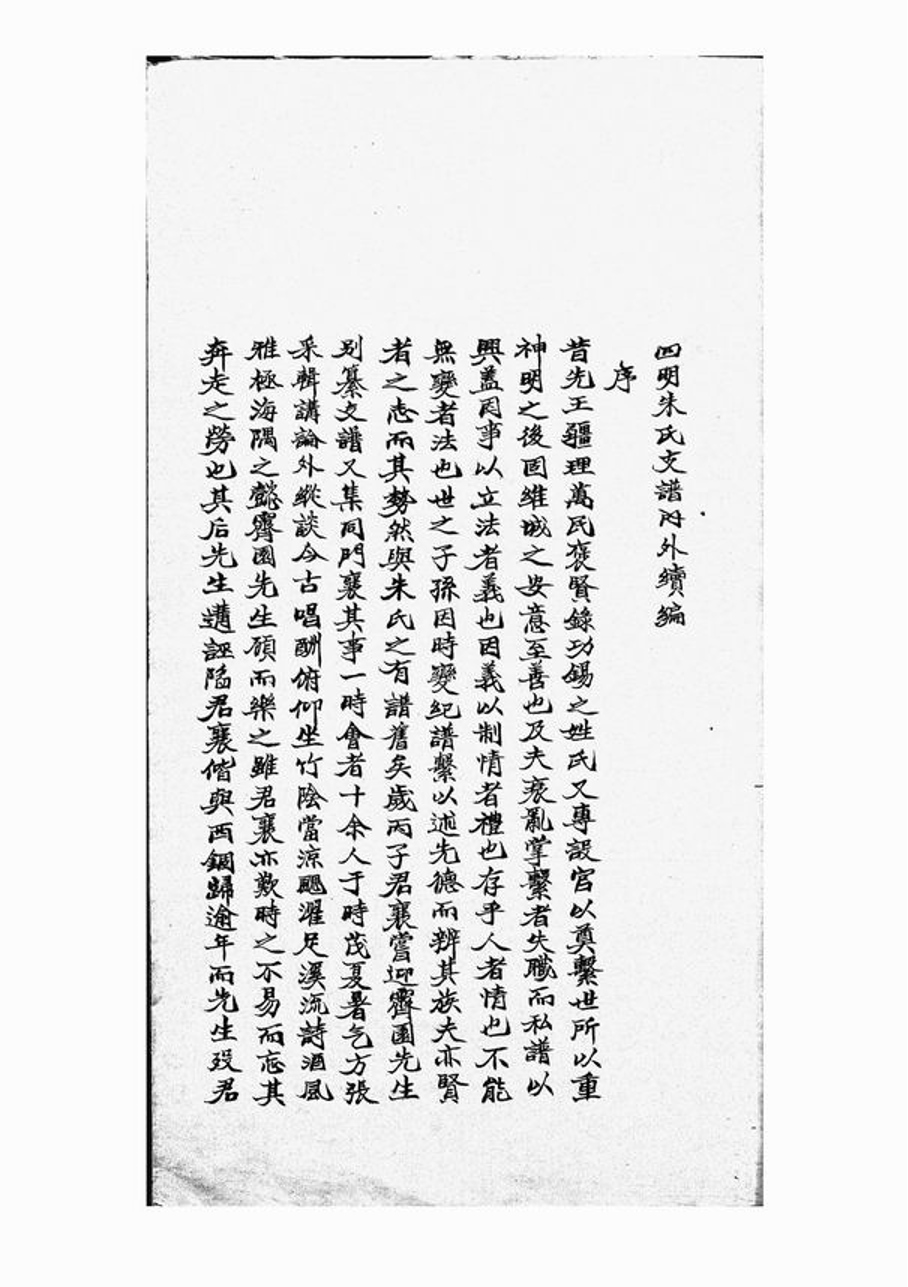 四明朱氏支譜內外續編
序
昔先王疆理萬民褒賢錄功錫之姓氏又專設官以奠繫世所以重
神明之後固維城之安意至善也及夫衰亂掌繫者失職而私譜以
興蓋因事以立法者義也因義以制情者禮也存乎人者情也不能
無變者法也世之子孫因時變紀譜繫以述先德而辨其族夫亦賢
者之志而其勢然與朱氏之有譜舊矣歲丙子君襄嘗迎霽園先生
別纂支譜又集同門襄其事一時會者十余人于時茂夏暑气方張
采輯講論外縱談今古唱酬俯仰坐竹陰當涼颸濯足溪流詩酒風
雅極海隅之懿霽園先生頎而樂之雖君襄亦歎時之不易而忘其
奔走之勞也其后先生遘誣陷君襄偕與西錮歸逾年而先生歿君